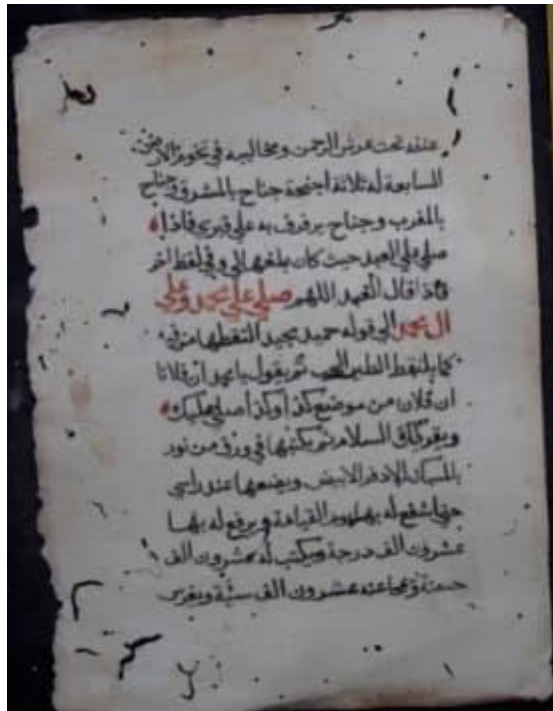 عنقه تحت عرش الرحمن ومخاليبه في تخوم الارض
السابعة له ثلاثة اجنحة جناح بالمشرق وجناح
بالمغرب وجناح يرفرف به على قبري فاذا
صلي علي العبد حيث كان بلغها الي وفي لفظ اخر
فاذا قال العبد اللهم صلي علي محمد وعلي
ال محمد الي قوله حميد مجيد التقطها من فيه
كما يلتقط الطير الحب ثم يقول يا محمد ان فلانا
ابن فلان من موضع كذا وكذا صلي عليك
ويقرئك السلام ثم يكتبها في ورق من نور
بالمسك الاذفر الابيض ويضعها عند راسي
حتى اشفع له بها يوم القيامة ويرفع له بها
عشرون الف درجة ويكتب له عشرون الف
حسنة ويمحا عنه عشرون الف سيئة ويغرس